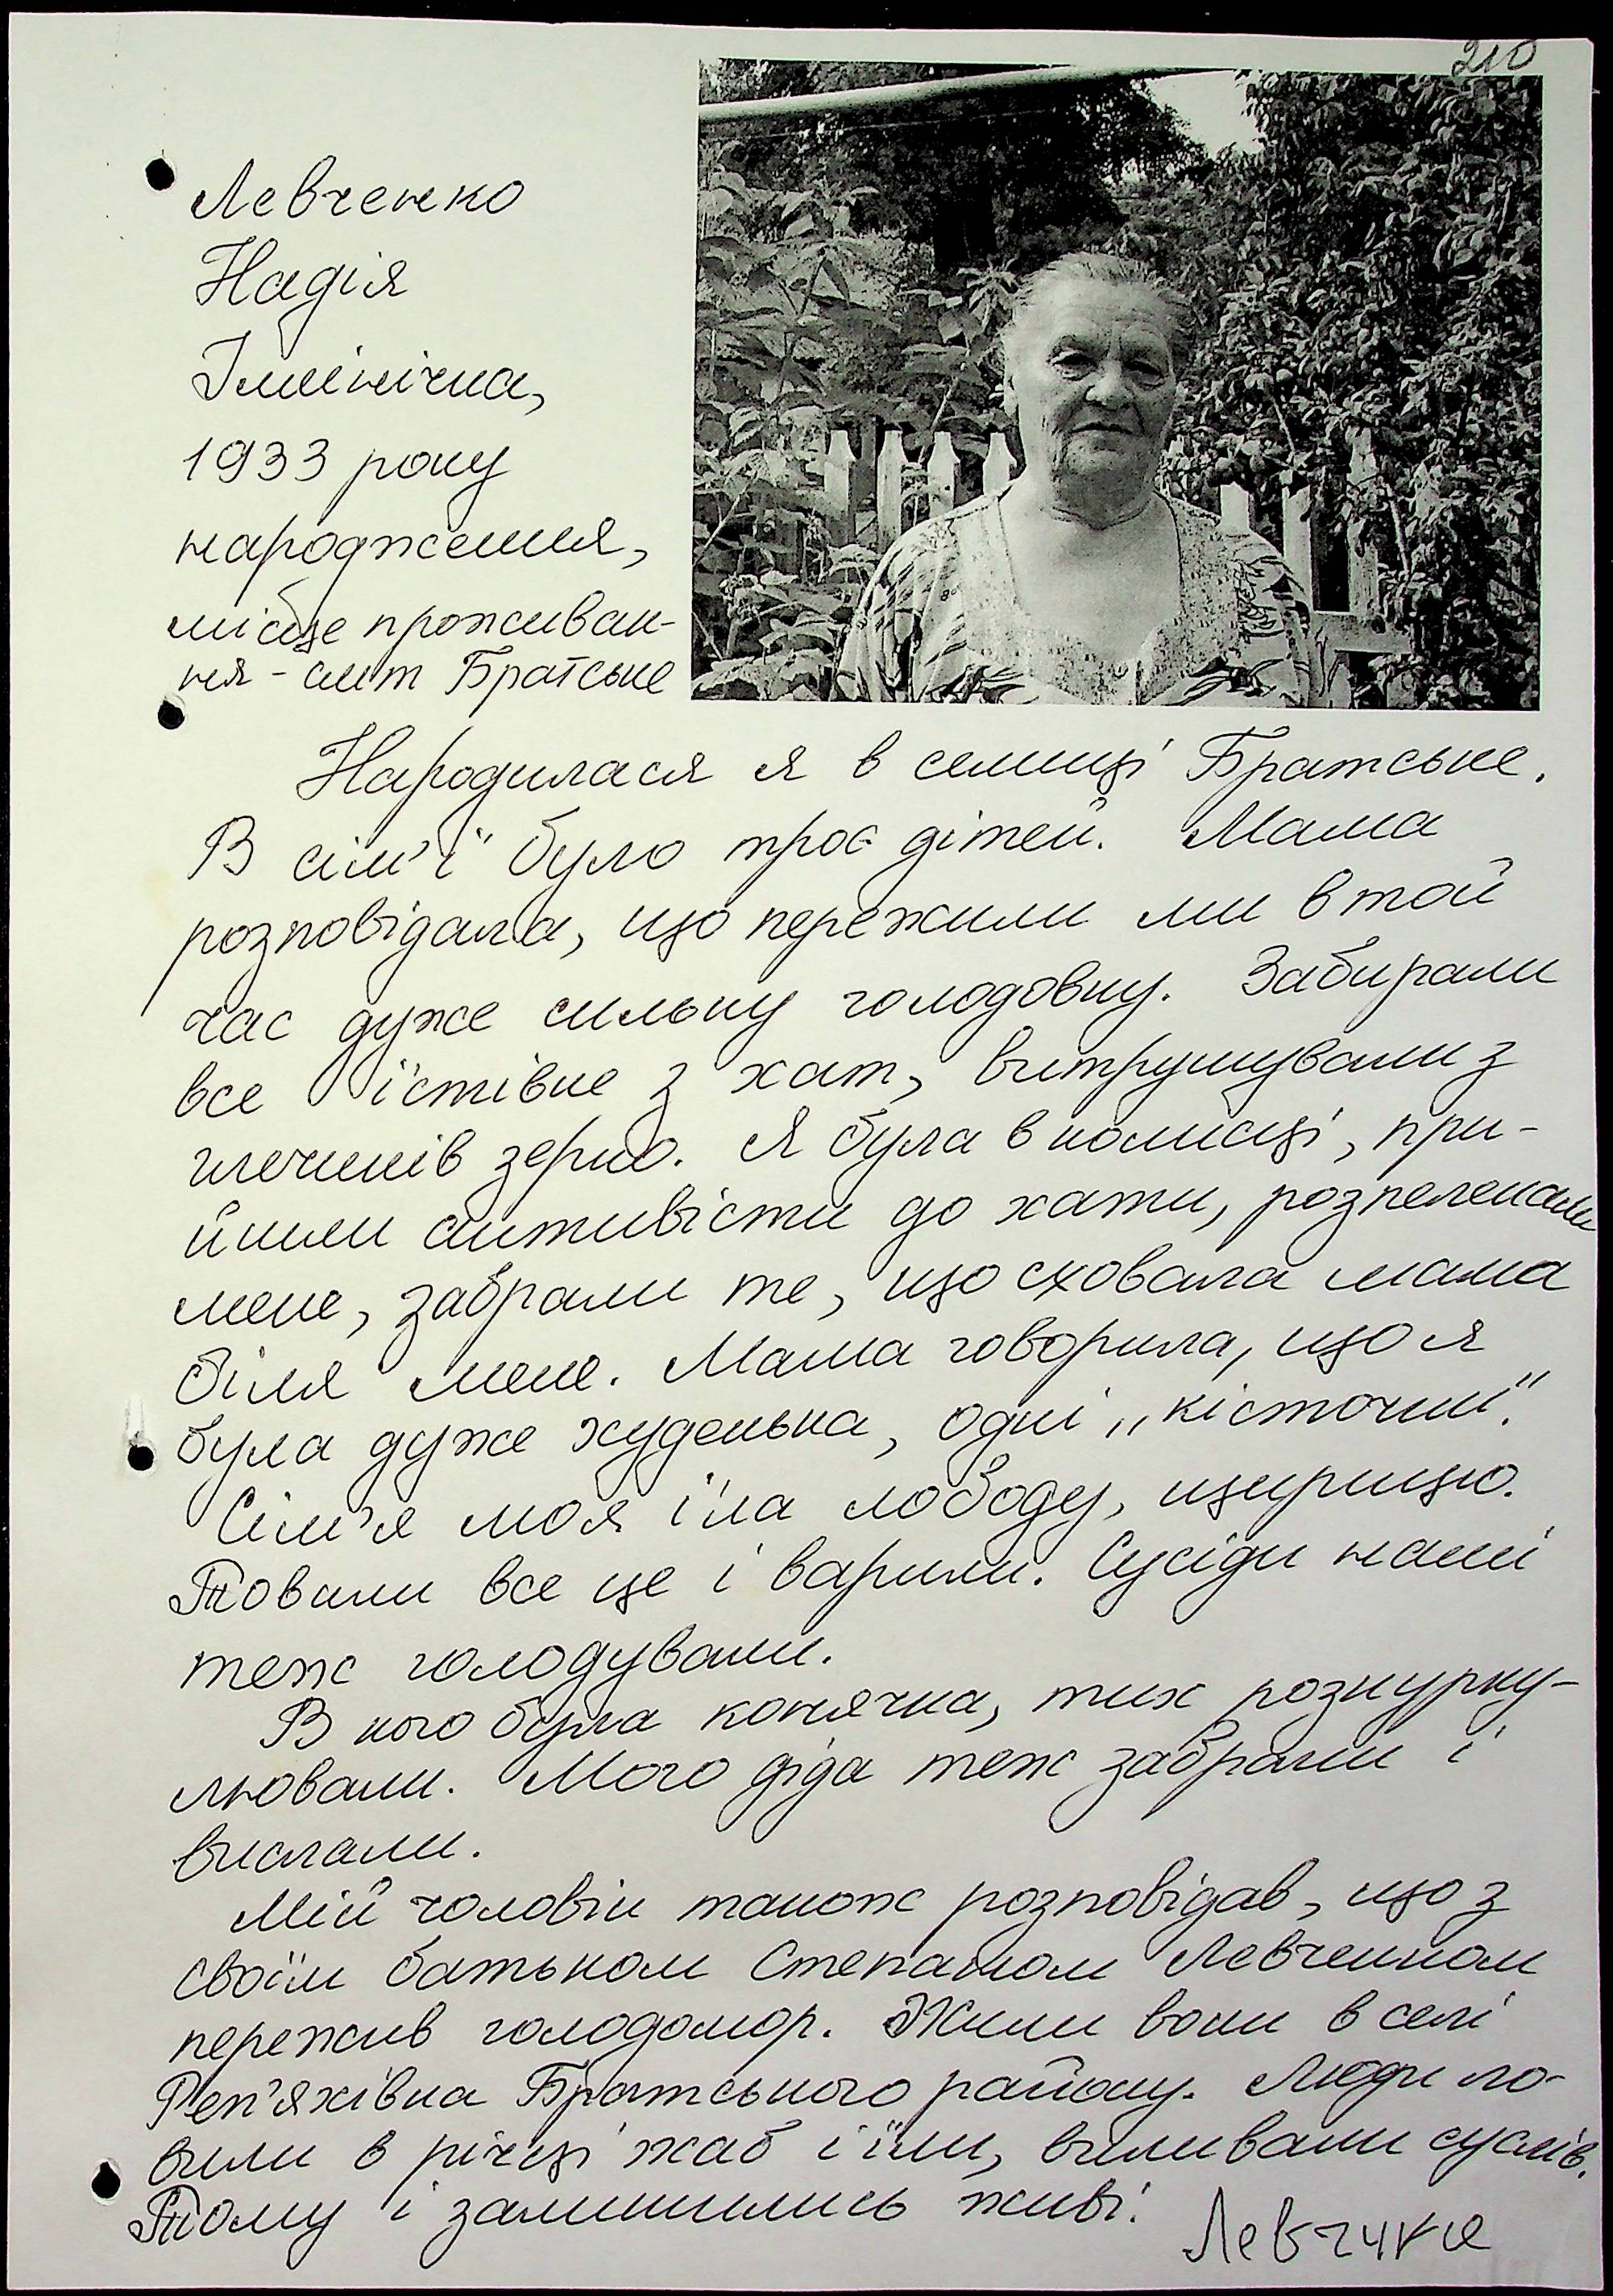 210
Левченко
Надія
Іллінічна,
1933 року
народження,
місце проживан-
ня - смт Братське
Народилася я в селищі Братське.
В сім'ї було троє дітей. Мама
розповідала, що пережили ми в той
час дуже сильну голодовку. Забирали
все їстівне з хат, витрушували з
глечиків зерно. Я була в колисці, при-
йшли активісти до хати, розпеленали
мене, забрали те, що сховала мама
біля мене. Мама говорила, що я
була дуже худенька, одні „кісточки".
Сім'я моя їла лободу, щирицю.
Товкли все це і варили. Сусіди наші
теж голодували.
В кого була конячка, тих розкурку-
лювали. Мого діда теж забрали і
вислали.
Мій чоловік також розповідав, що з
своїм батьком Степаном Левченком
пережив голодомор. Жили вони в селі
Реп'яхівка Братського району. Люди ло-
вили в річці жаб і їли, виливали суслів.
Тому і залишились живі.